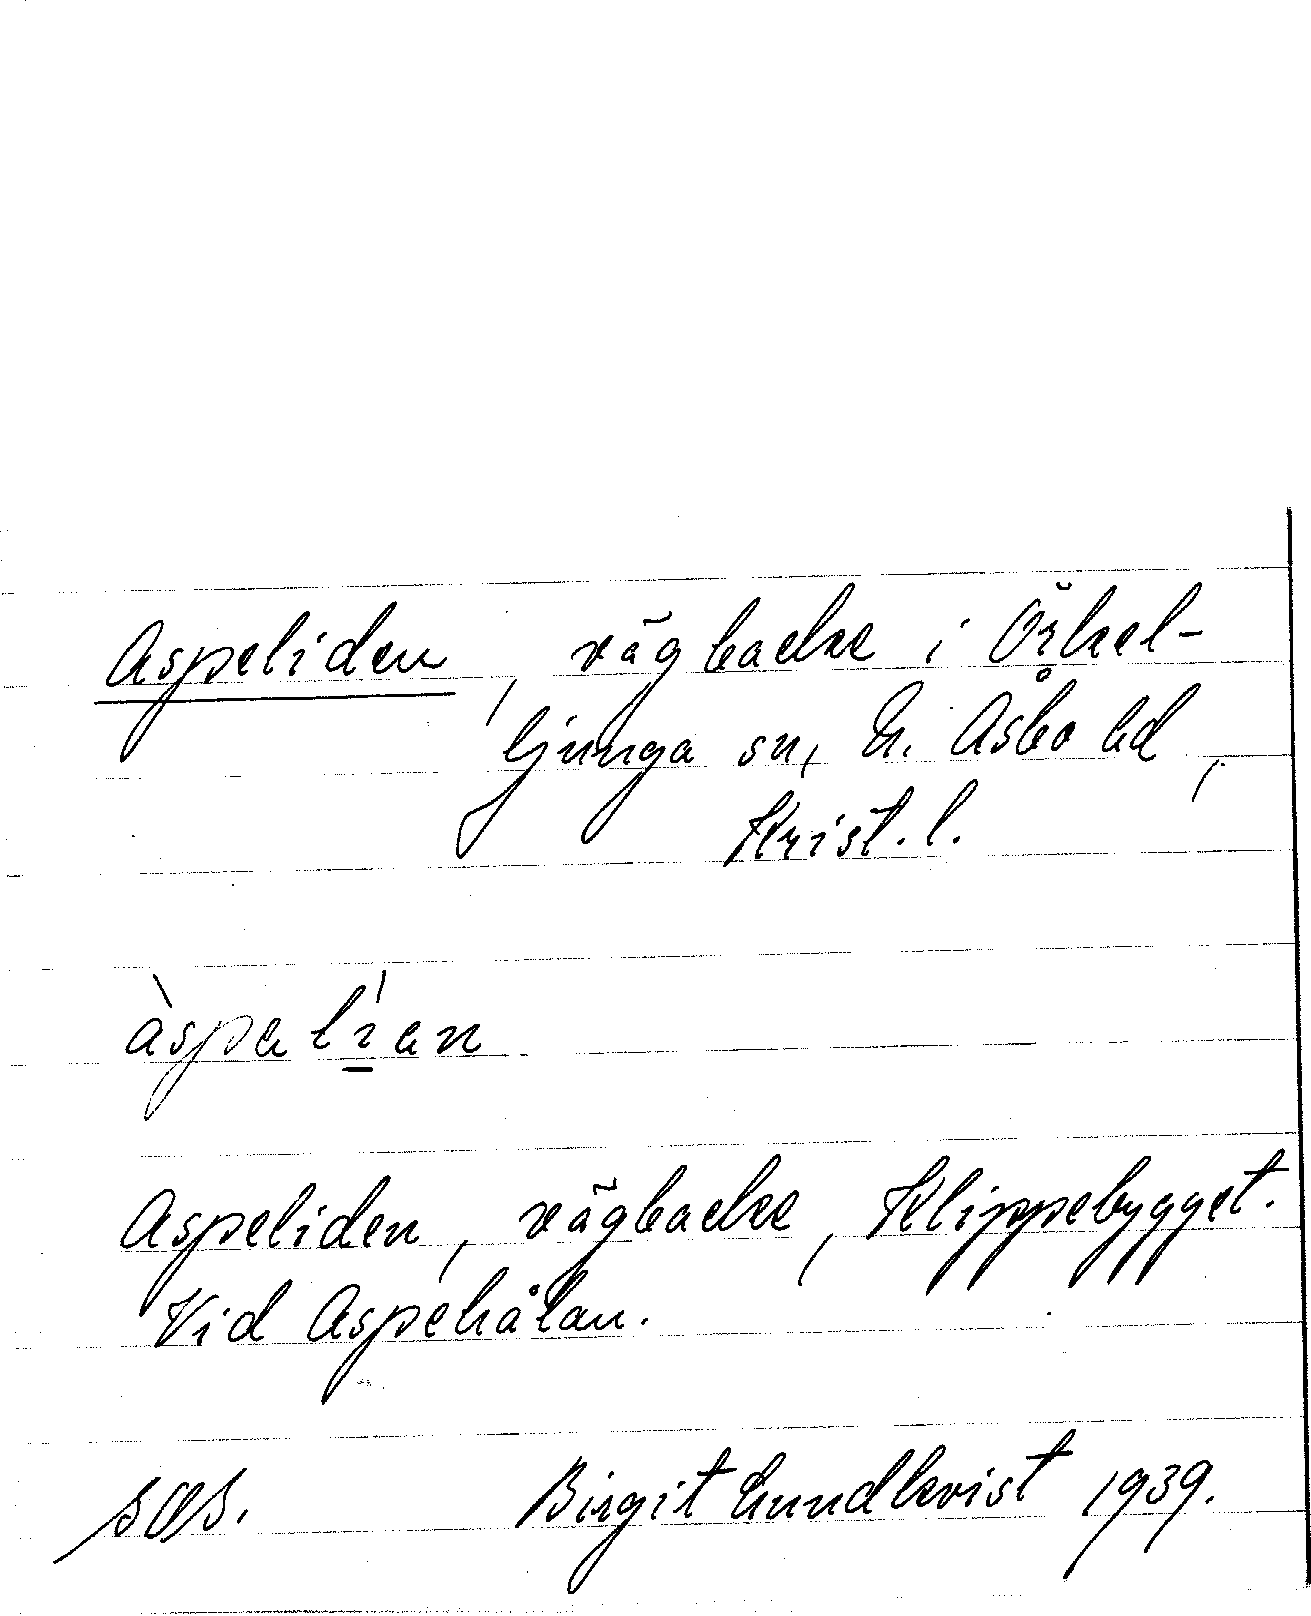 Aspeliden, vägbacke i Örkel-
ljunga sn, N. Åsbo hd,
Krist. l.
àspalían
Aspeliden, vägbacke, Klippebygget.
Vid Aspehålan.
SOS. Birgit Lundkvist 1939.